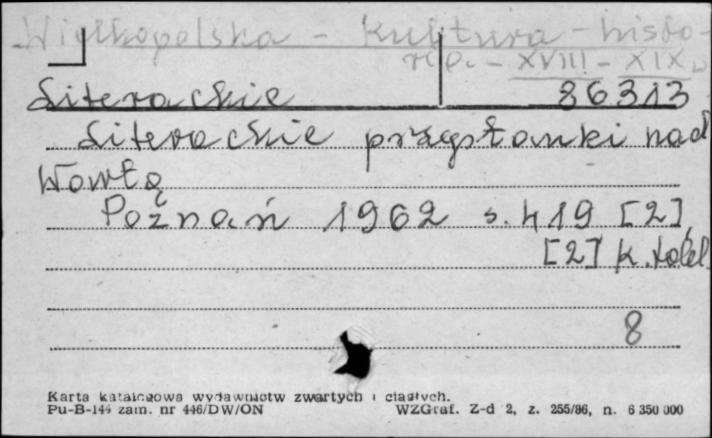 Wielkopolska - Kultura - histo-
ria - XVIII - XIX w
Literackie 86313
Literackie przystanki nad
Wartą
Poznań 1962 s. 419 [2],
[2] k. tabl
8
Karta katalogowa wydawnictw zwartych i ciągłych.
Pu-B-144 zam. nr 446/DW/ON WZGraf. Z-d 2, z. 255/86, n. 6 350 000